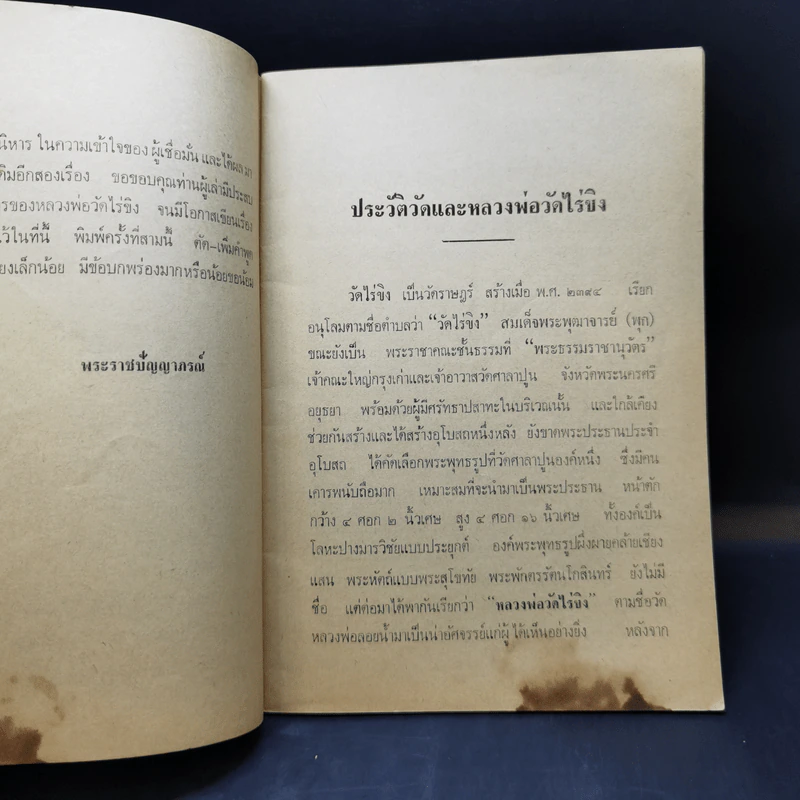 นิหาร ในความเข้าใจของ ผู้เชื่อมั่น และได้ผล มา
ติมอีกสองเรื่อง ขอขอบคุณท่านผู้เล่ามีประสบ
รของหลวงพ่อวัดไร่ขิง จนมีโอกาสเขียนเรื่อง
ว้ในที่นี้ พิมพ์ครั้งที่สามนี้ ตัด–เพิ่มคำพูด
ยงเล็กน้อย มีข้อบกพร่องมากหรือน้อยขอน้อม
พระราชปัญญาภรณ์
ประวัติวัดและหลวงพ่อวัดไร่ขิง
วัดไร่ขิง เป็นวัดราษฎร์ สร้างเมื่อ พ.ศ. ๒๓๙๔ เรียก
อนุโลมตามชื่อตำบลว่า “วัดไร่ขิง” สมเด็จพระพุฒาจารย์ (พุก)
ขณะยังเป็น พระราชาคณะชั้นธรรมที่ “พระธรรมราชานุวัตร”
เจ้าคณะใหญ่กรุงเก่าและเจ้าอาวาสวัดศาลาปูน จังหวัดพระนครศรี
อยุธยา พร้อมด้วยผู้มีศรัทธาปสาทะในบริเวณนั้น และใกล้เคียง
ช่วยกันสร้างและได้สร้างอุโบสถหนึ่งหลัง ยังขาดพระประธานประจำ
อุโบสถ ได้คัดเลือกพระพุทธรูปที่วัดศาลาปูนองค์หนึ่ง ซึ่งมีคน
เคารพนับถือมาก เหมาะสมที่จะนำมาเป็นพระประธาน หน้าตัก
กว้าง ๔ ศอก ๒ นิ้วเศษ สูง ๔ ศอก ๑๖ นิ้วเศษ ทั้งองค์เป็น
โลหะปางมารวิชัยแบบประยุกต์ องค์พระพุทธรูปผึ่งผายคล้ายเชียง
แสน พระหัตถ์แบบพระสุโขทัย พระพักตรรัตนโกสินทร์ ยังไม่มี
ชื่อ แต่ต่อมาได้พากันเรียกว่า “หลวงพ่อวัดไร่ขิง” ตามชื่อวัด
หลวงพ่อลอยน้ำมาเป็นน่าอัศจรรย์แก่ผู้ ได้เห็นอย่างยิ่ง หลังจาก